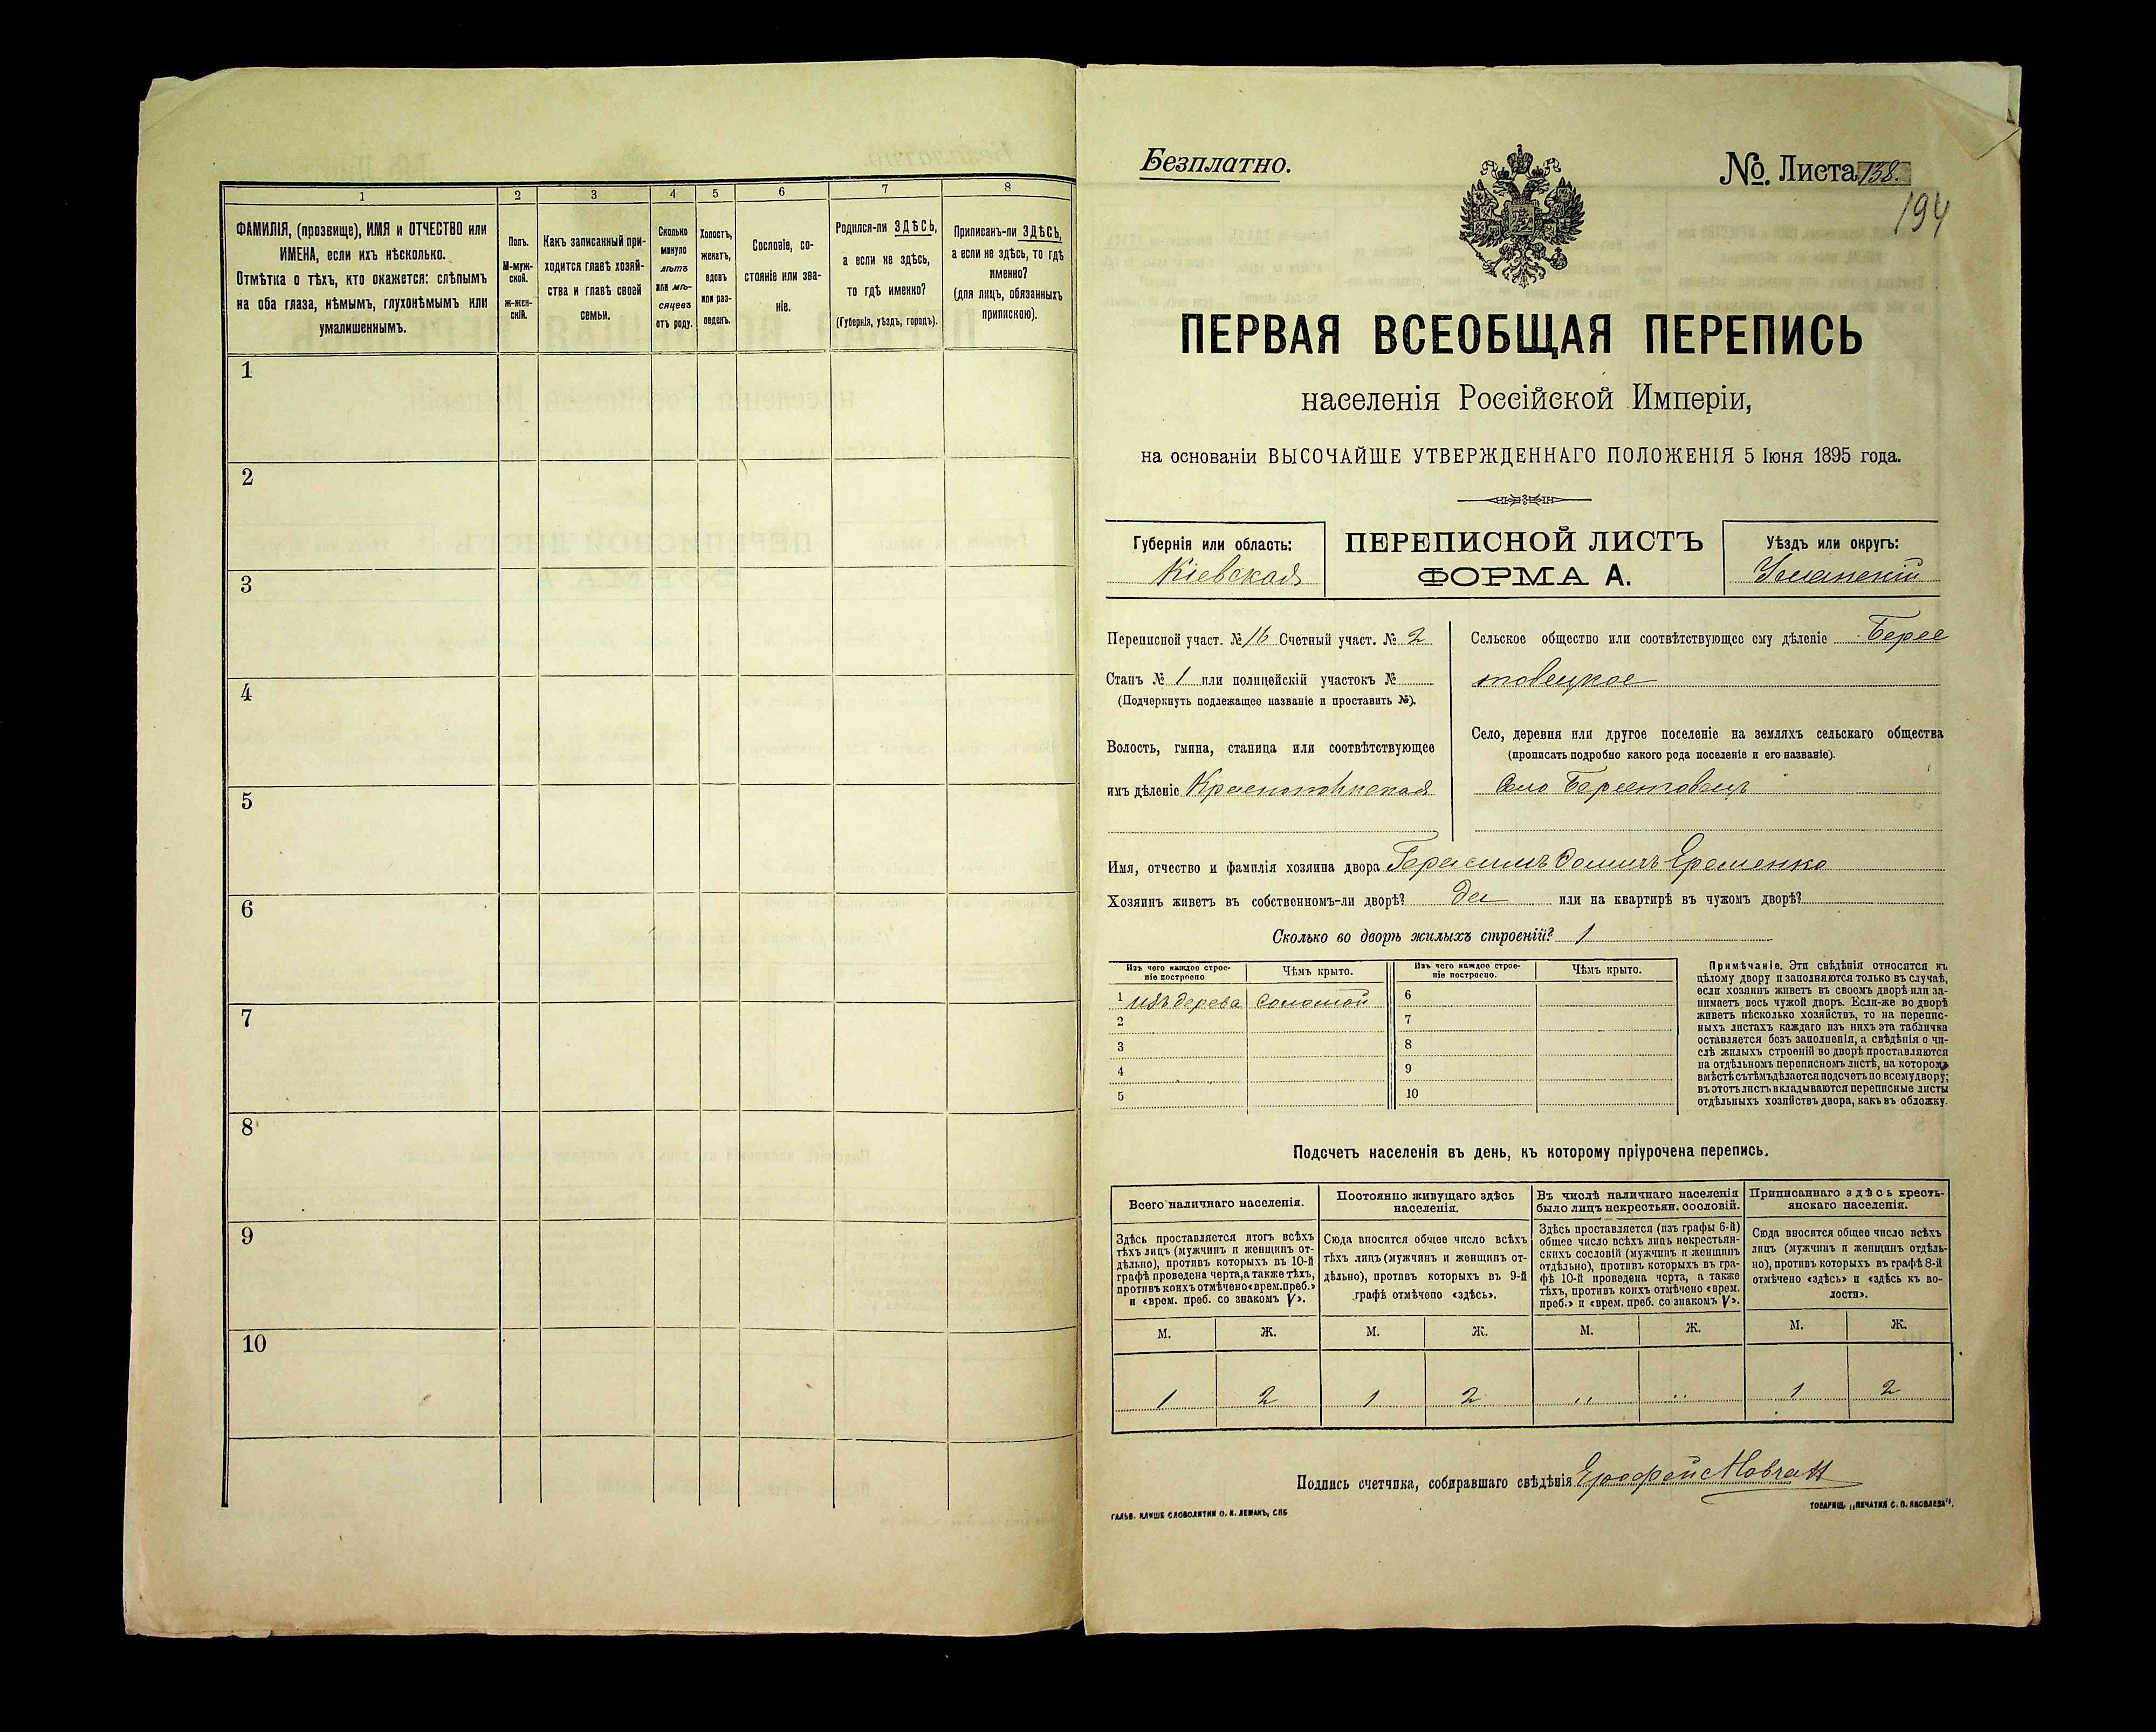 1
2
3
4
5
6
7
8
ФАМИЛІЯ, (прозвище), ИМЯ и ОТЧЕСТВО или
ИМЕНА, если ихъ нѣсколько.
Отмѣтка о тѣхъ, кто окажется: слѣпымъ
на оба глаза, нѣмымъ, глухонѣмымъ или
умалишеннымъ.
Полъ.
М-муж-
ской.
ж-жен-
скій.
Какъ записанный при-
ходится главѣ хозяй-
ства и главѣ своей
семьи.
Сколько
минуло
лѣтъ
или мѣ-
сяцевъ
отъ роду.
Холостъ,
женатъ,
вдовъ
или раз-
веденъ.
Сословіе, со-
стояніе или зва-
ніе.
Родился-ли ЗДѢСЬ,
а если не здѣсь,
то гдѣ именно?
(Губернія, уѣздъ, городъ).
Приписанъ-ли ЗДѢСЬ,
а если не здѣсь, то гдѣ
именно?
(для лицъ, обязанныхъ
припискою).
1
2
3
4
5
6
7
8
9
10
Безплатно.
№. Листа 138.
194
ПЕРВАЯ ВСЕОБЩАЯ ПЕРЕПИСЬ
населенія Россійской Имперіи,
на основаніи ВЫСОЧАЙШЕ УТВЕРЖДЕННАГО ПОЛОЖЕНІЯ 5 Іюня 1895 года.
Губернія или область:
Кіевская
ПЕРЕПИСНОЙ ЛИСТЪ
ФОРМА А.
Уѣздъ или округъ:
Уманскій
Переписной участ. № 16 Счетный участ. № 2
Станъ № 1 или полицейскій участокъ №
(Подчеркнуть подлежащее названіе и проставить №).
Волость, гмина, станица или соотвѣтствующее
имъ дѣленіе
Сельское общество или соотвѣтствующее ему дѣленіе Берес
товецкое
Село, деревня или другое поселеніе на земляхъ сельскаго общества
(прописать подробно какого рода поселеніе и его названіе).
Село Берестовець
Имя, отчество и фамилія хозяина двора Герасимъ Еременко
Хозяинъ живетъ въ собственномъ-ли дворѣ? да или на квартирѣ въ чужомъ дворѣ?
Сколько во дворѣ жилыхъ строеній? 1
Изъ чего каждое строе-
ніе построено
Чѣмъ крыто.
Изъ чего каждое строе-
ніе построено.
Чѣмъ крыто.
1 изъ дерева соломой
2
3
4
5
6
7
8
9
10
Примѣчаніе. Эти свѣдѣнія относятся къ
цѣлому двору и заполняются только въ случаѣ,
если хозяинъ живетъ въ своемъ дворѣ или за-
нимаетъ весь чужой дворъ. Если-же во дворѣ
живетъ нѣсколько хозяйствъ, то на перепис-
ныхъ листахъ каждаго изъ нихъ эта табличка
оставляется безъ заполненія, а свѣдѣнія о чи-
слѣ жилыхъ строеній во дворѣ проставляются
на отдѣльномъ переписномъ листѣ, на которомъ
вмѣстѣ съ тѣмъ дѣлается подсчетъ по всему двору;
въ этотъ листъ вкладываются переписные листы
отдѣльныхъ хозяйствъ двора, какъ въ обложку.
Подсчетъ населенія въ день, къ которому пріурочена перепись.
Всего наличнаго населенія.
Здѣсь проставляется итогъ всѣхъ
тѣхъ лицъ (мужчинъ и женщинъ от-
дѣльно), противъ которыхъ въ 10-й
графѣ проведена черта, а также тѣхъ,
противъ коихъ отмѣчено «врем. преб.»
и «врем. преб. со знакомъ V».
Постоянно живущаго здѣсь
населенія.
Сюда вносится общее число всѣхъ
тѣхъ лицъ (мужчинъ и женщинъ от-
дѣльно), противъ которыхъ въ 9-й
графѣ отмѣчено «здѣсь».
Въ числѣ наличнаго населенія
было лицъ некрестьян. сословій.
Здѣсь проставляется (изъ графы 6-й)
общее число всѣхъ лицъ некрестьян-
скихъ сословій (мужчинъ и женщинъ
отдѣльно), противъ которыхъ въ гра-
фѣ 10-й проведена черта, а также
тѣхъ, противъ коихъ отмѣчено «врем.
преб.» и «врем. преб. со знакомъ V».
Приписаннаго здѣсь кресть-
янскаго населенія.
Сюда вносится общее число всѣхъ
лицъ (мужчинъ и женщинъ отдѣль-
но), противъ которыхъ въ графѣ 8-й
отмѣчено «здѣсь» и «здѣсь къ во-
лости».
М. Ж. М. Ж. М. Ж. М. Ж.
1 2 1 2 ,, ,, 1 2
Подпись счетчика, собиравшаго свѣдѣнія Ерофей Мовчан
ГАЛЬВ. КЛИШЕ СЛОВОЛИТНИ О. И. ЛЕМАНЪ, СПБ
ТОВАРИЩ. „ПЕЧАТНЯ С. П. ЯКОВЛЕВА".